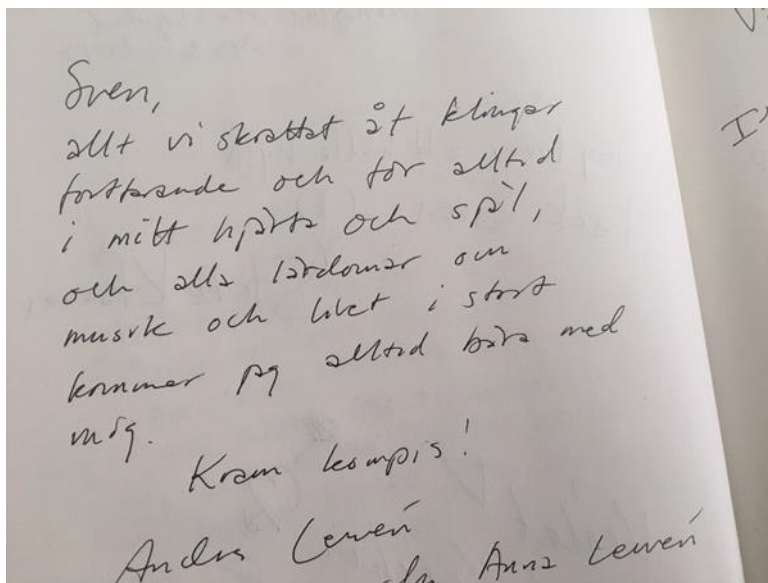 Sven,
allt vi skrattat åt klingar
fortfarande och för alltid
i mitt hjärta och spel,
och alla lärdomar om
musik och livet i stort
kommer jag alltid bära med
mig.
Kram kompis!
Andra Lewén
och Anna Lewén